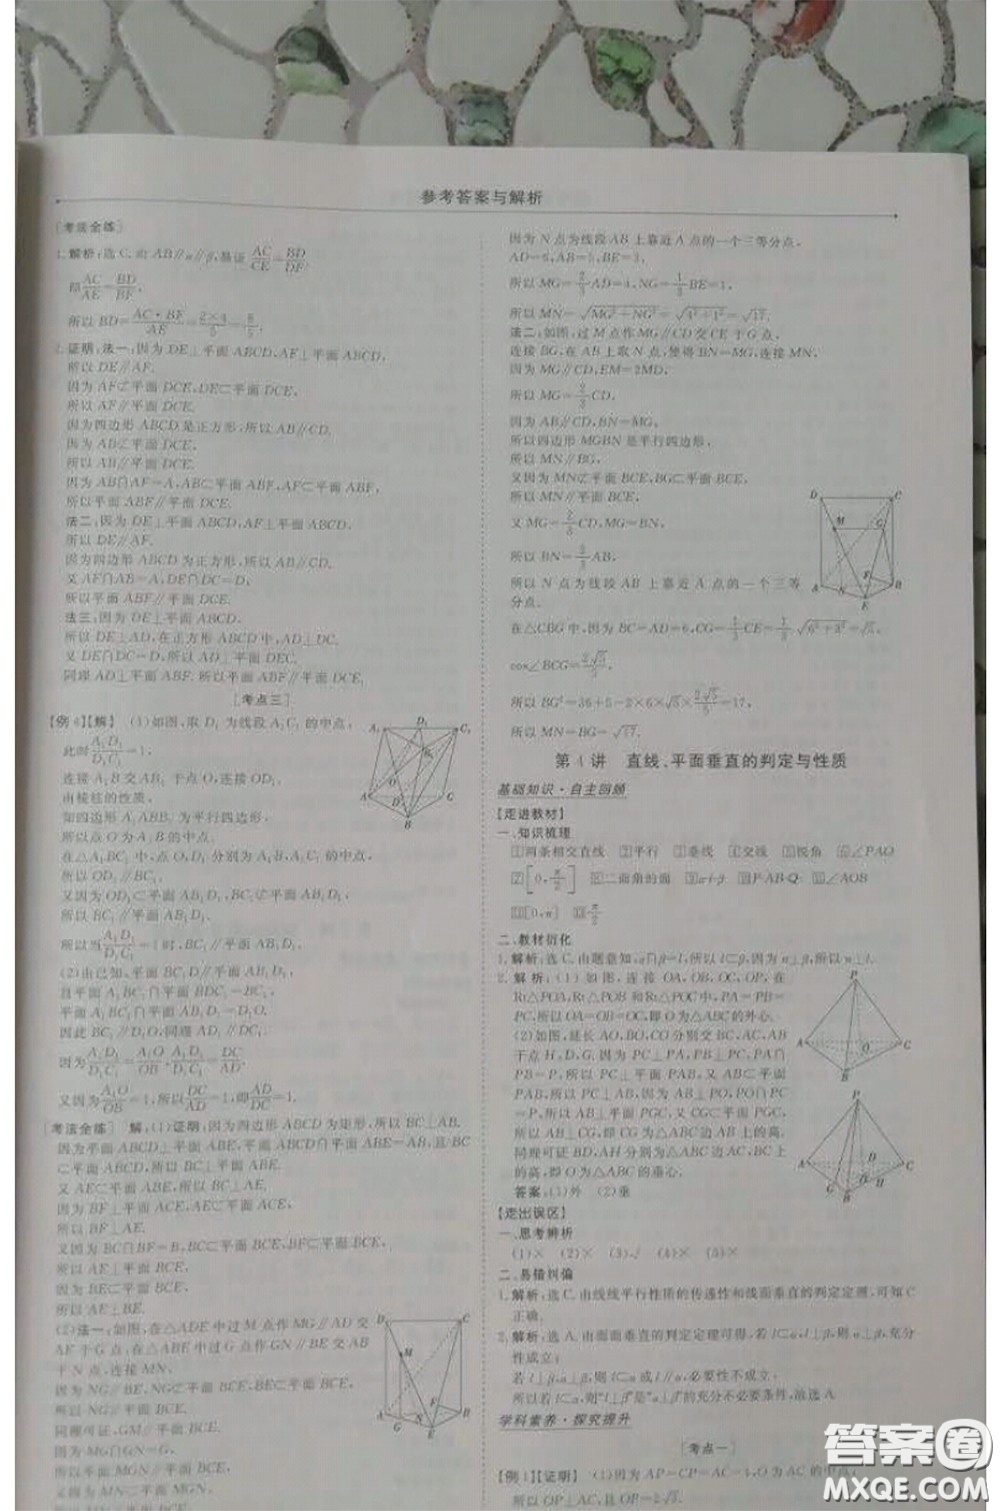 参考答案与解析
[考法全练]
1.解析:选C.由AB∥α∥β,易证AC/CE=BD/DF.
即AC/AE=BD/BF,
所以BD=AC·BF/AE=2×4/5=8/5.
2.证明:法一:因为DE⊥平面ABCD,AF⊥平面ABCD,
所以DE∥AF.
因为AF⊄平面DCE,DE⊂平面DCE,
所以AF∥平面DCE.
因为四边形ABCD是正方形,所以AB∥CD.
因为AB⊄平面DCE,
所以AB∥平面DCE.
因为AB∩AF=A,AB⊂平面ABF,AF⊂平面ABF,
所以平面ABF∥平面DCE.
法二:因为DE⊥平面ABCD,AF⊥平面ABCD,
所以DE∥AF.
因为四边形ABCD为正方形,所以AB∥CD.
又AF∩AB=A,DE∩DC=D,
所以平面ABF∥平面DCE.
法三:因为DE⊥平面ABCD,
所以DE⊥AD,在正方形ABCD中,AD⊥DC,
又DE∩DC=D,所以AD⊥平面DEC.
同理AD⊥平面ABF.所以平面ABF∥平面DCE.
[考点三]
[例4][解] (1)如图,取D₁为线段A₁C₁的中点,
此时A₁D₁/D₁C₁=1,
连接A₁B交AB₁于点O,连接OD₁.
由棱柱的性质,
知四边形A₁ABB₁为平行四边形,
所以点O为A₁B的中点.
在△A₁BC₁中,点O,D₁分别为A₁B,A₁C₁的中点,
所以OD₁∥BC₁.
又因为OD₁⊂平面AB₁D₁,BC₁⊄平面AB₁D₁,
所以BC₁∥平面AB₁D₁.
所以当A₁D₁/D₁C₁=1时,BC₁∥平面AB₁D₁.
(2)由已知,平面BC₁D∥平面AB₁D₁,
且平面A₁BC₁∩平面BDC₁=BC₁,
平面A₁BC₁∩平面AB₁D₁=D₁O.
因此BC₁∥D₁O,同理AD₁∥DC₁.
因为A₁D₁/D₁C₁=A₁O/OB,A₁D₁/D₁C₁=DC/AD,
又因为A₁O/OB=1,所以DC/AD=1,即AD/DC=1.
[考法全练] 解:(1)证明:因为四边形ABCD为矩形,所以BC⊥AB.
因为平面ABCD⊥平面ABE,平面ABCD∩平面ABE=AB,且BC
⊂平面ABCD,所以BC⊥平面ABE.
又AE⊂平面ABE,所以BC⊥AE.
因为BF⊥平面ACE,AE⊂平面ACE,
所以BF⊥AE.
又因为BC∩BF=B,BC⊂平面BCE,BF⊂平面BCE,
所以AE⊥平面BCE.
因为BE⊂平面BCE,
所以AE⊥BE.
(2)法一:如图,在△ADE中过M点作MG∥AD交
AE于G点,在△ABE中过G点作GN∥BE交AB
于N点,连接MN,
因为NG∥BE,NG⊄平面BCE,BE⊂平面BCE,
所以NG∥平面BCE.
同理可证,GM∥平面BCE.
因为MG∩GN=G,
所以平面MGN∥平面BCE,
又因为MN⊂平面MGN,
所以MN∥平面BCE,
因为N点为线段AB上靠近A点的一个三等分点,
AD=6,AB=5,BE=3,
所以MG=2/3AD=4,NG=1/3BE=1,
所以MN=√MG²+NG²=√4²+1²=√17.
法二:如图,过M点作MG∥CD交CE于G点,
连接BG,在AB上取N点,使得BN=MG,连接MN,
因为MG∥CD,EM=2MD,
所以MG=2/3CD,
因为AB∥CD,BN=MG,
所以四边形MGBN是平行四边形,
所以MN∥BG,
又因为MN⊄平面BCE,BG⊂平面BCE,
所以MN∥平面BCE,
又MG=2/3CD,MG=BN,
所以BN=2/3AB,
所以N点为线段AB上靠近A点的一个三等
分点.
在△CBG中,因为BC=AD=6,CG=1/3CE=1/3√6²+3²=√5,
cos∠BCG=2√5/5,
所以BG²=36+5-2×6×√5×2√5/5=17,
所以MN=BG=√17.
第4讲 直线、平面垂直的判定与性质
基础知识·自主回顾
[走进教材]
一、知识梳理
①两条相交直线 ②平行 ③垂线 ④交线 ⑤锐角 ⑥∠PAO
⑦[0,π/2] ⑧二面角的面 ⑨α-l-β ⑩P-AB-Q ⑪∠AOB
⑫[0,π] ⑬π/2
二、教材衍化
1.解析:选C.由题意知,α∩β=l,所以l⊂β,因为n⊥β,所以n⊥l.
2.解析:(1)如图,连接OA,OB,OC,OP,在
Rt△POA,Rt△POB和Rt△POC中,PA=PB=
PC,所以OA=OB=OC,即O为△ABC的外心.
(2)如图,延长AO,BO,CO分别交BC,AC,AB
于点H,D,G.因为PC⊥PA,PB⊥PC,PA∩
PB=P,所以PC⊥平面PAB,又AB⊂平面
PAB,所以PC⊥AB,因为AB⊥PO,PO∩PC
=P,所以AB⊥平面PGC,又CG⊂平面PGC,
所以AB⊥CG,即CG为△ABC边AB上的高.
同理可证BD,AH分别为△ABC边AC,BC上
的高,即O为△ABC的垂心.
答案:(1)外 (2)垂
[走出误区]
一、思考辨析
(1)× (2)× (3)√ (4)× (5)×
二、易错纠偏
1.解析:选C.由线线平行性质的传递性和线面垂直的判定定理,可知C
正确.
2.解析:选A.由面面垂直的判定定理可得,若l⊂α,l⊥β,则α⊥β,充分
性成立;
若l⊂α,α⊥β,则l与β平行或相交或垂直,必要性不成立.
所以若l⊂α,则“l⊥β”是“α⊥β”的充分不必要条件,故选A.
学科素养·探究提升
[考点一]
[例1][证明] (1)因为AP=CP=AC=4,O为AC的中点,
所以OP⊥AC,且OP=2√3.
答案圈
MXQE.COM